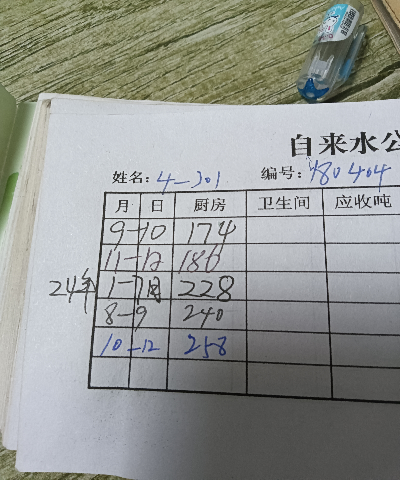 自来水公
姓名: 4-301 编号: 480404
月 日 厨房 卫生间 应收吨
9-10 174
11-12 186
24年 1-7月 228
8-9 240
10-12 258